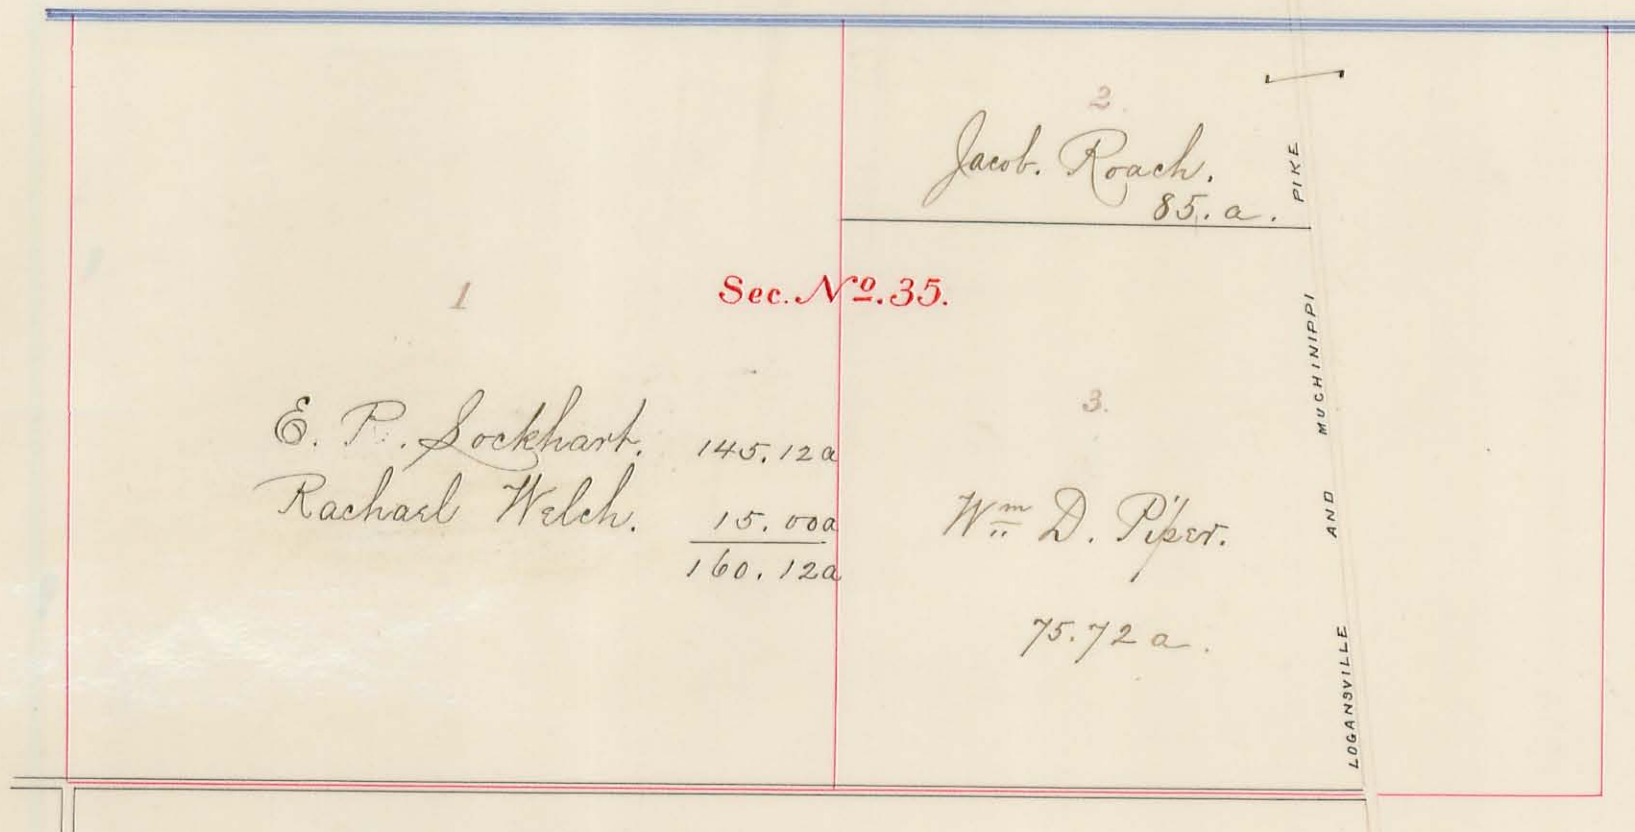 2.
Jacob. Roach.
85. a.
Sec. Nº. 35.
1
E. P. Lockhart. 145.12a
Rachael Welch. 15.00a
160.12a
3.
Wm D. Piper.
75.72 a.
LOGANSVILLE AND MUCHINIPPI PIKE